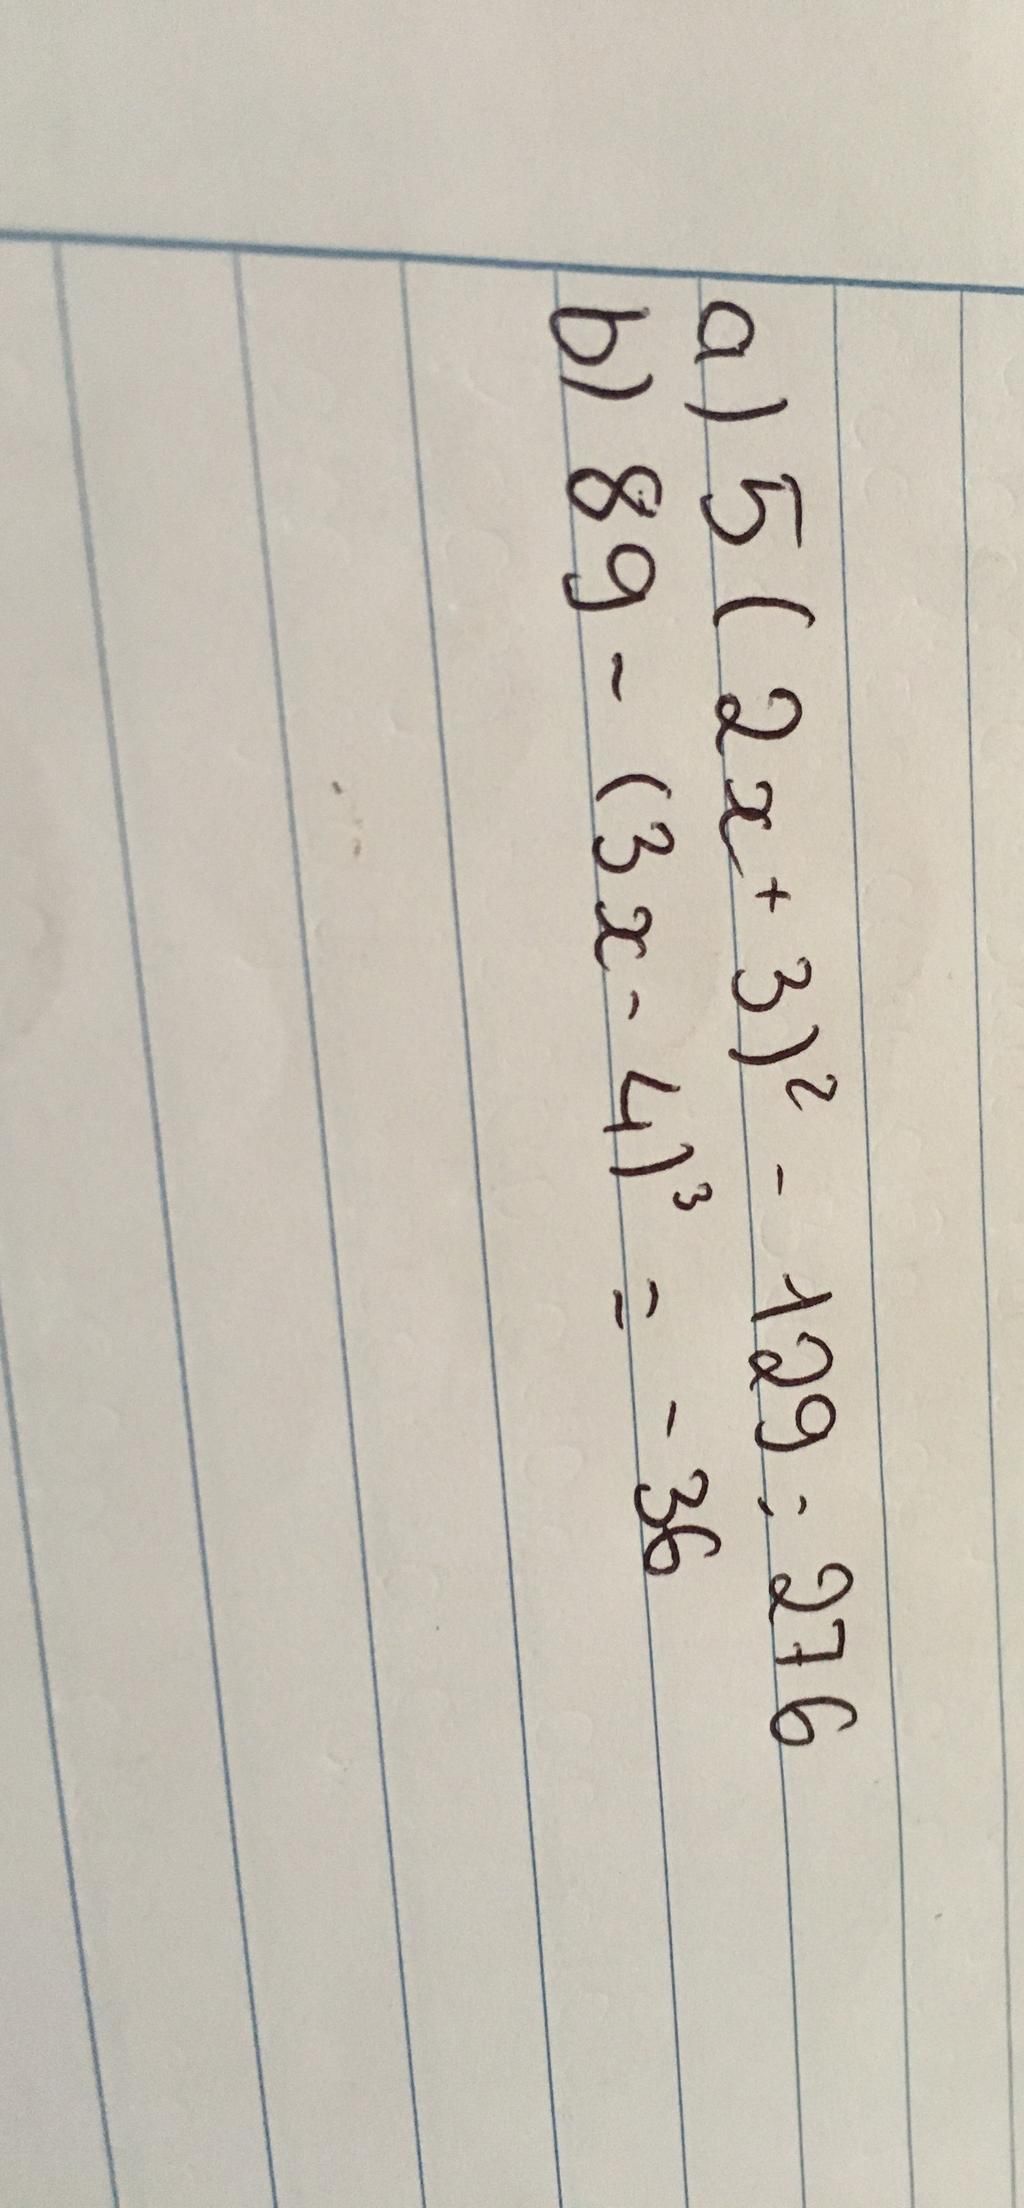 a) 5(2x+3)² - 129 : 276
b) 89 - (3x-4)³ = -36